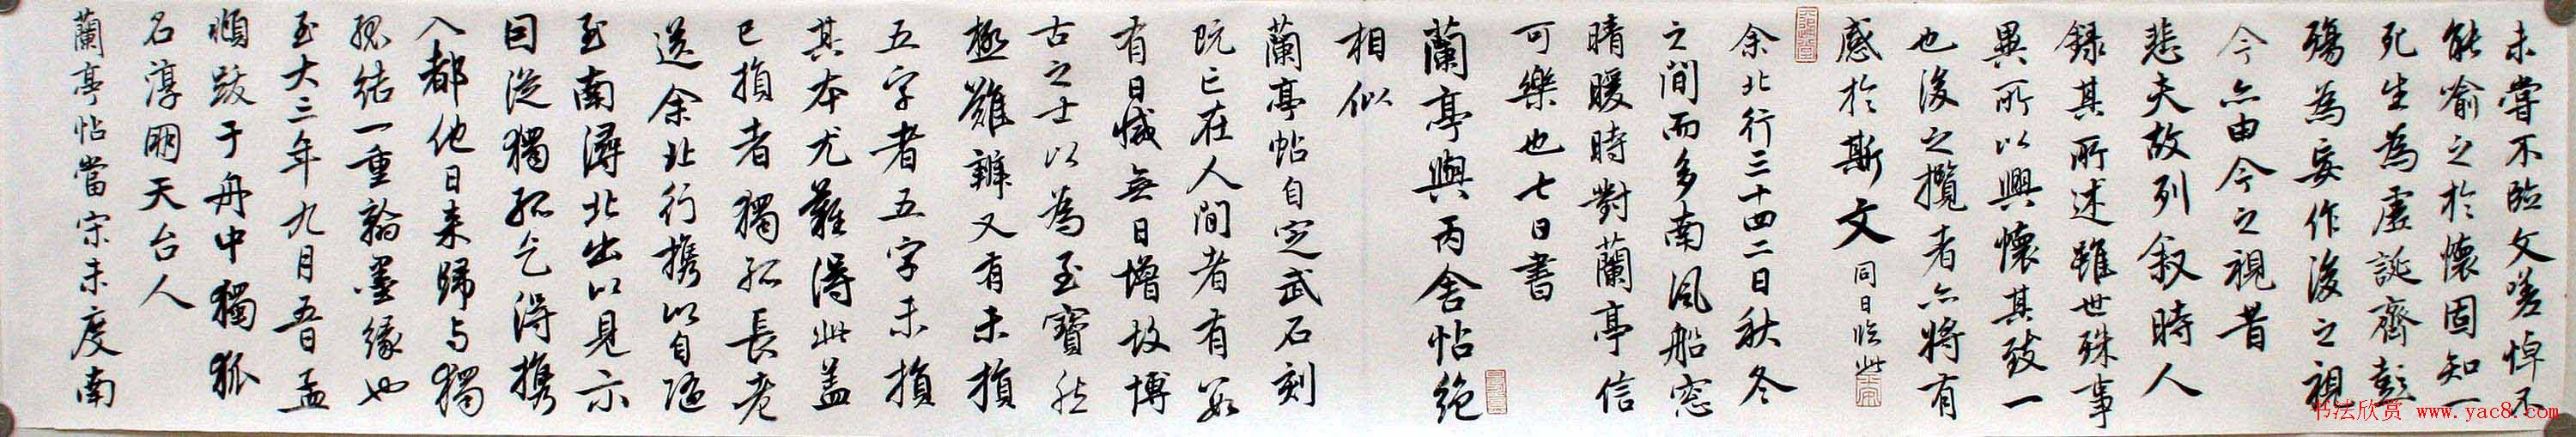 未嘗不臨文嗟悼不
能喻之於懷固知一
死生為虛誕齊彭
殤為妄作後之視
今亦由今之視昔
悲夫故列叙時人
錄其所述雖世殊事
異所以興懷其致一
也後之攬者亦將有
感於斯文 同日臨此
余北行三十四二日秋冬
之間而多南風船窓
晴暖時對蘭亭信
可樂也七日書
蘭亭與丙舍帖絶
相似
蘭亭帖自定武石刻
既亡在人間者有數
有日減無日增故博
古之士以為至寶然
極難辨又有未損
五字者五字未損
其本尤難得此蓋
已損者獨孤長老
送余北行携以自隨
至南潯北出以見示
因從獨孤乞得携
入都他日来歸与獨
孤結一重翰墨緣也
至大三年九月五日孟
頫跋于舟中獨孤
名淳朋天台人
蘭亭帖當宋未度南
书法欣赏 www.yac8.com